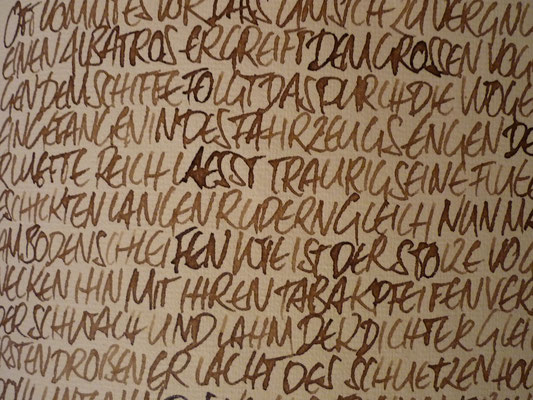 OFT KOMMT ES VOR DASS UM SICH ZU VERGNU
EINEN ALBATROS ERGREIFT DEM GROSSEN VOG
GEN DEM SCHIFFE FOLGT DAS DURCH DIE WOGE
EINGEFANGEN IN DES FAHRZEUGS ENGEN DE
PLUEFFTE REICH LAESST TRAURIG SEINE FLUE
ESCHICKTEN LANGEN RUDERN GLEICH NUN MA
AM BODEN SCHLEIFEN WIE IST DER STOLZE VOG
NECKEN HIN MIT IHREN TABAKPFEIFEN VER
DER SCHWACH UND LAHM DER DICHTER GLEI
RSTEN DROBEN ER LACHT DES SCHUETZEN HOC